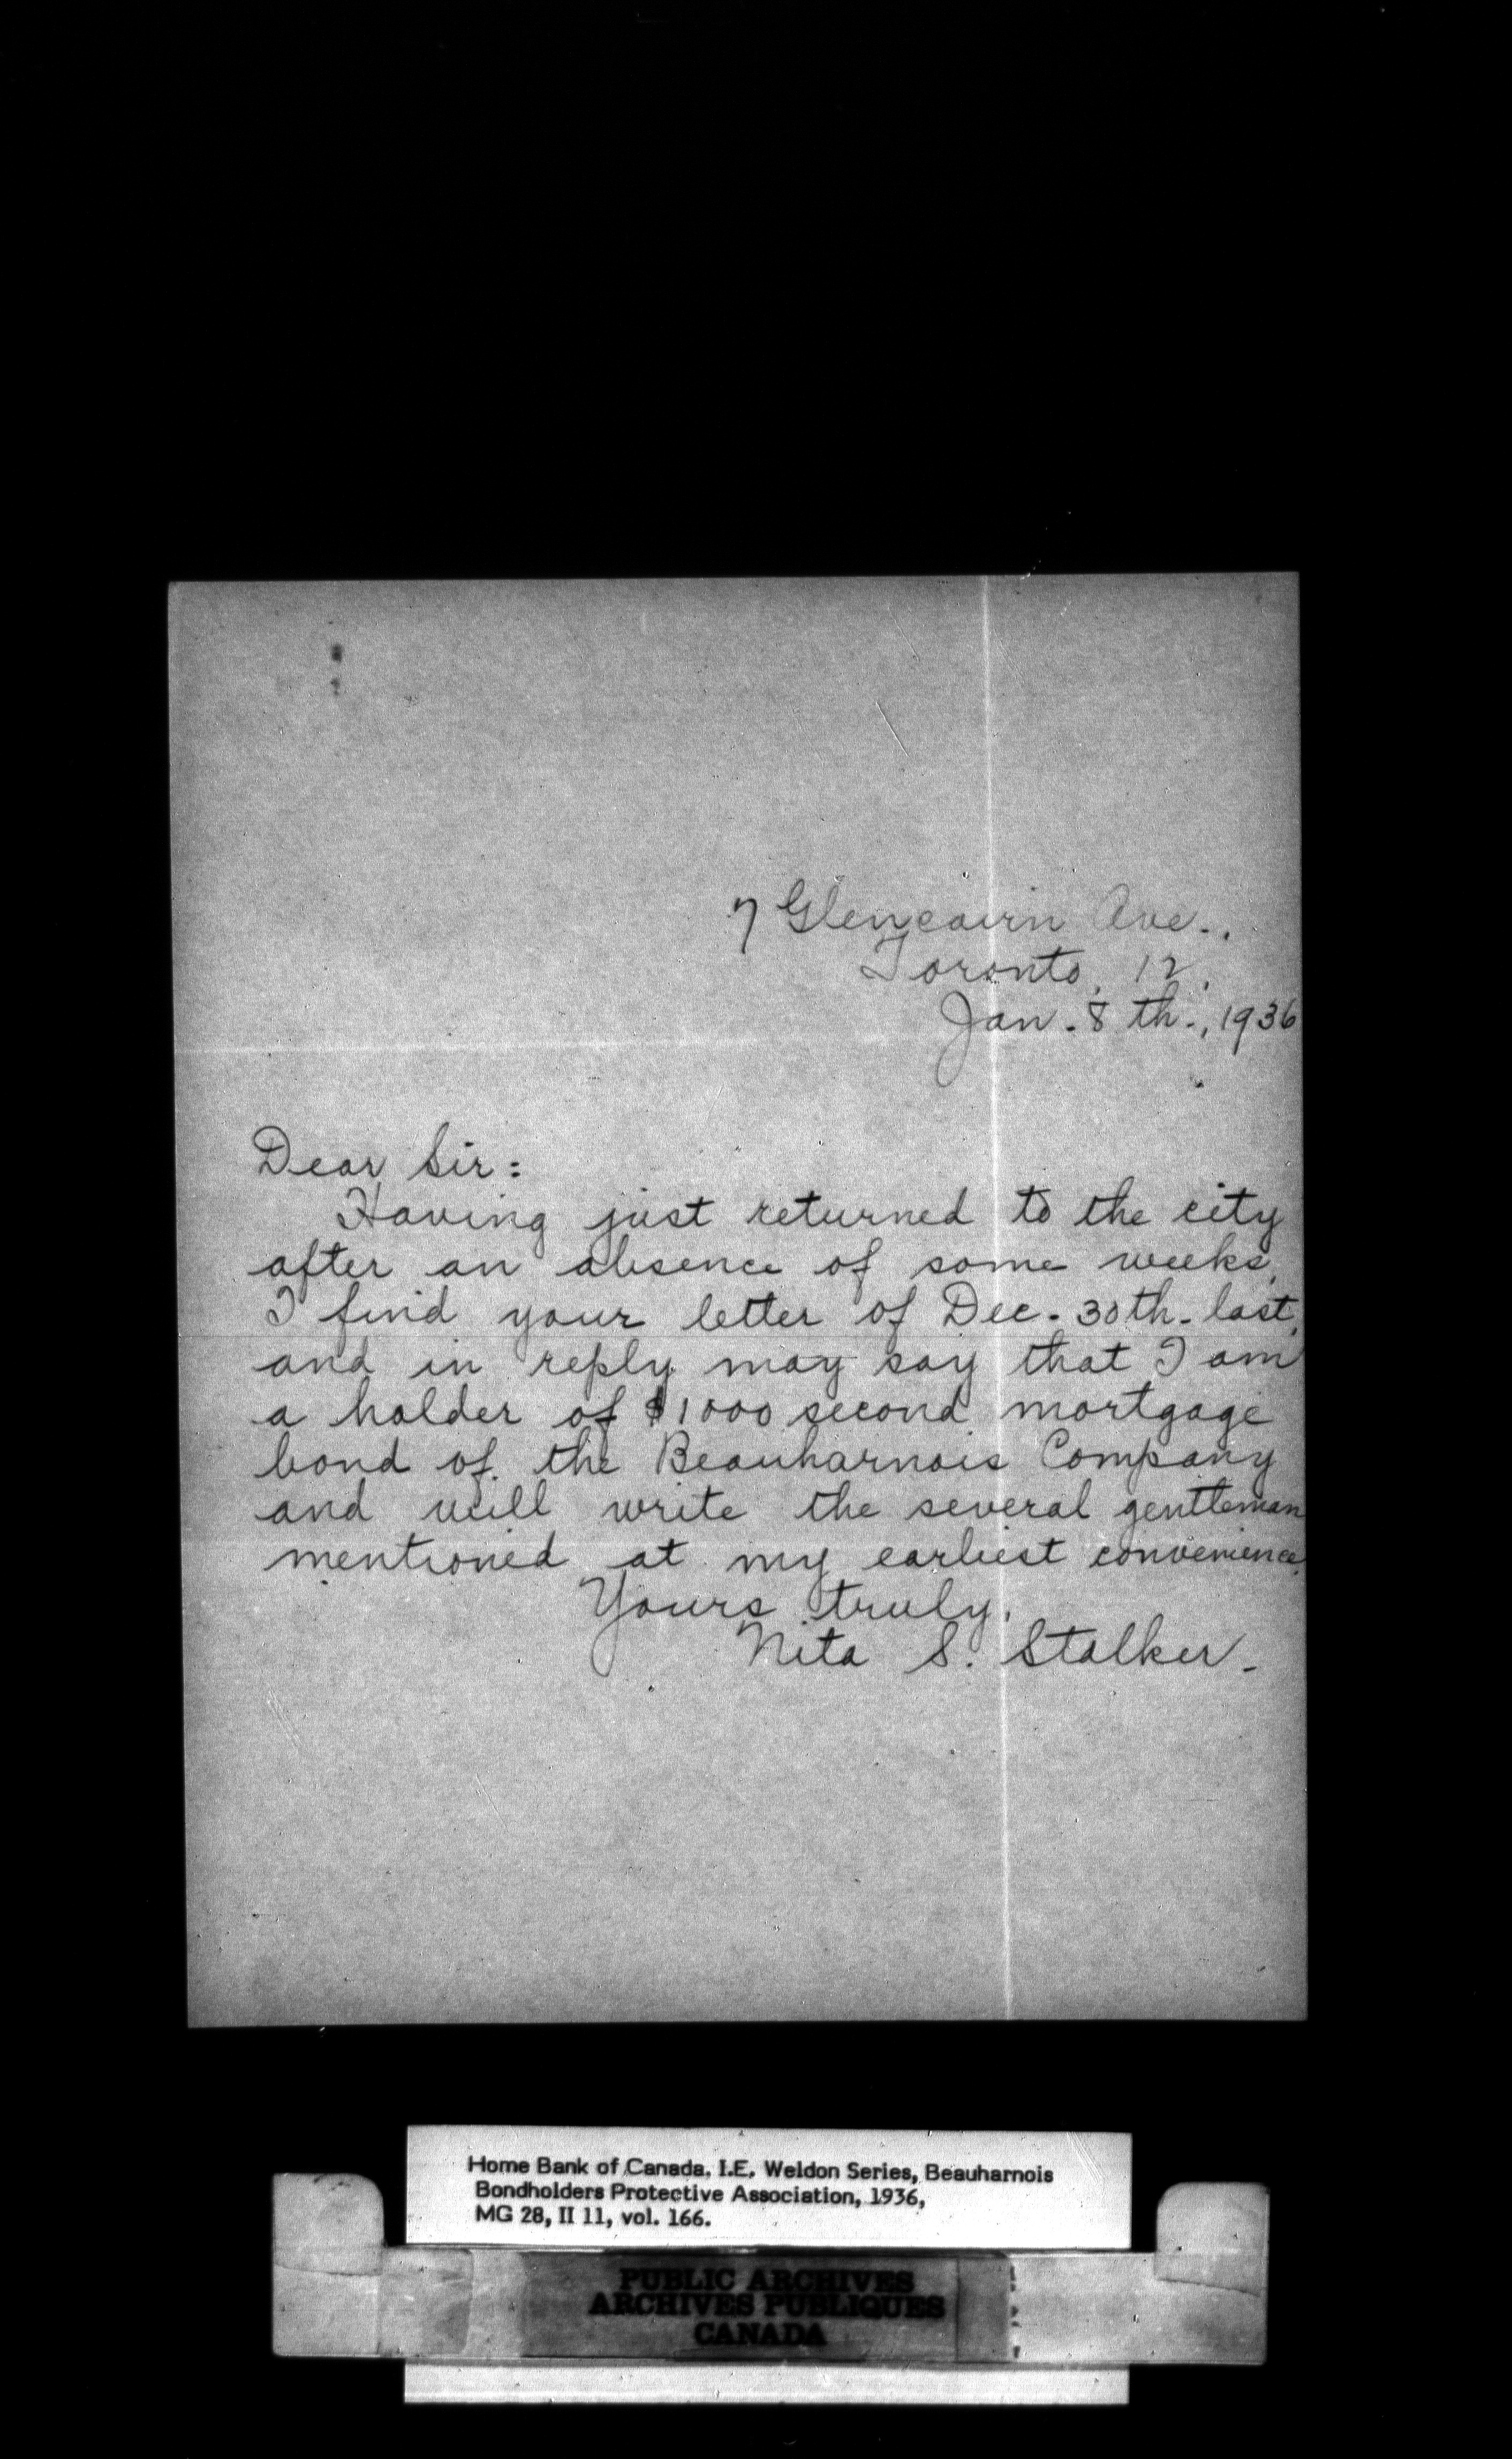 7 Glencairn Ave.,
Toronto, 12,
Jan. 8 th., 1936
Dear Sir:
Having just returned to the city
after an absence of some weeks,
I find your letter of Dec. 30th. last,
and in reply may say that I am
a holder of $1000 second mortgage
bond of the Beauharnois Company
and will write the several gentleman
mentioned at my earliest convenience.
Yours truly,
Nita S. Stalker.
Home Bank of Canada, I.E. Weldon Series, Beauharnois
Bondholders Protective Association, 1936,
MG 28, II 11, vol. 166.
PUBLIC ARCHIVES
ARCHIVES PUBLIQUES
CANADA